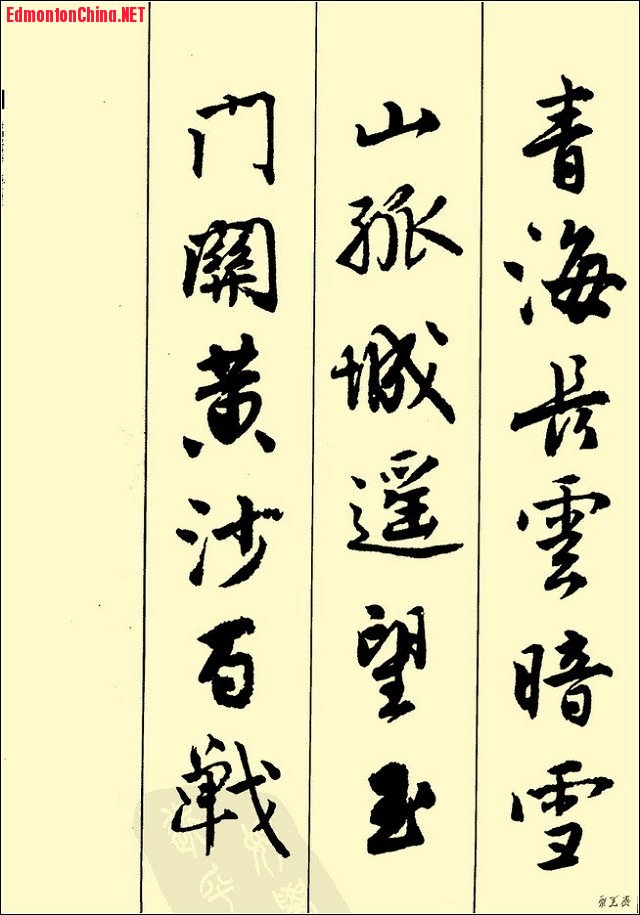 EdmontonChina.NET
青海長雲暗雪
山孤城遥望玉
門關黄沙百戰